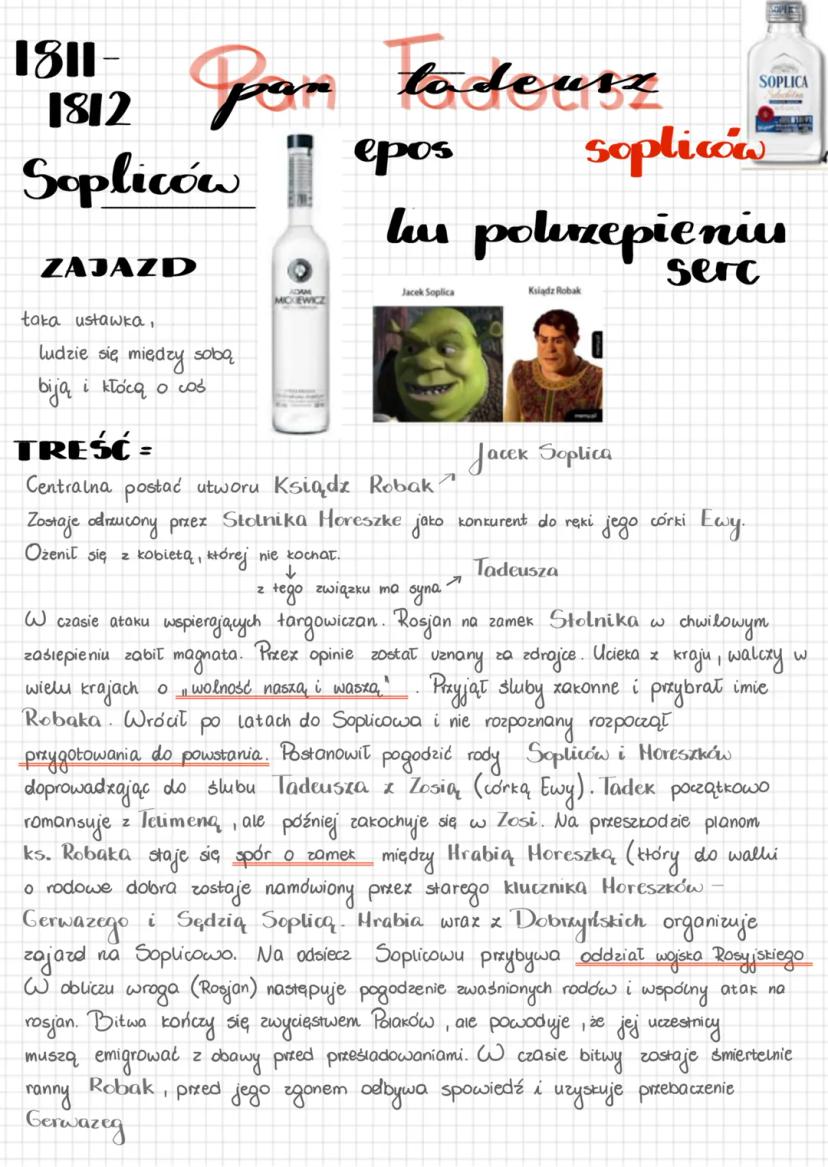 1811-
1812
Pan Tadeusz
pan tadeusz
SOPLICA
SOPLICA
Szlachetna
epos
soplicow
Soplicow
ku pokrzepieniu
serc
ZAJAZD
ADAM
MICKIEWICZ
Jacek Soplica
Ksiądz Robak
taka ustawka,
ludzie się między sobą
biją i kłócą o coś
memy.pl
memy.pl
TREŚĆ =
Jacek Soplica
Centralna postać utworu Ksiądz Robak ↗
Zostaje odrzucony przez Stolnika Horeszke jako konkurent do ręki jego córki Ewy.
Ożenił się z kobietą, której nie kochał.
↓
Tadeusza
z tego związku ma syna ↗
W czasie ataku wspierających targowiczan. Rosjan na zamek Stolnika w chwilowym
zaślepieniu zabił magnata. Przez opinie został uznany za zdrajce. Ucieka z kraju, walczy w
wielu krajach o „wolność naszą i waszą". Przyjął śluby zakonne i przybrał imie
Robaka. Wrócił po latach do Soplicowa i nie rozpoznany rozpoczął
przygotowania do powstania. Postanowił pogodzić rody Sopliców i Horeszków
doprowadzając do ślubu Tadeusza z Zosią (córką Ewy). Tadek początkowo
romansuje z Telimeną, ale później zakochuje się w Zosi. Na przeszkodzie planom
ks. Robaka staje się spór o zamek między Hrabią Horeszką (który do walki
o rodowe dobra zostaje namówiony przez starego klucznika Horeszków -
Gerwazego i Sędzią Soplicą. Hrabia wraz z Dobrzyńskich organizuje
zajazd na Soplicowo. Na odsiecz Soplicowu przybywa oddział wojska Rosyjskiego
W obliczu wroga (Rosjan) następuje pogodzenie zwaśnionych rodów i wspólny atak na
rosjan. Bitwa kończy się zwycięstwem Polaków, ale powoduje, że jej uczestnicy
muszą emigrować z obawy przed prześladowaniami. W czasie bitwy zostaje śmiertelnie
ranny Robak, przed jego zgonem odbywa spowiedź i uzyskuje przebaczenie
Gerwazeg